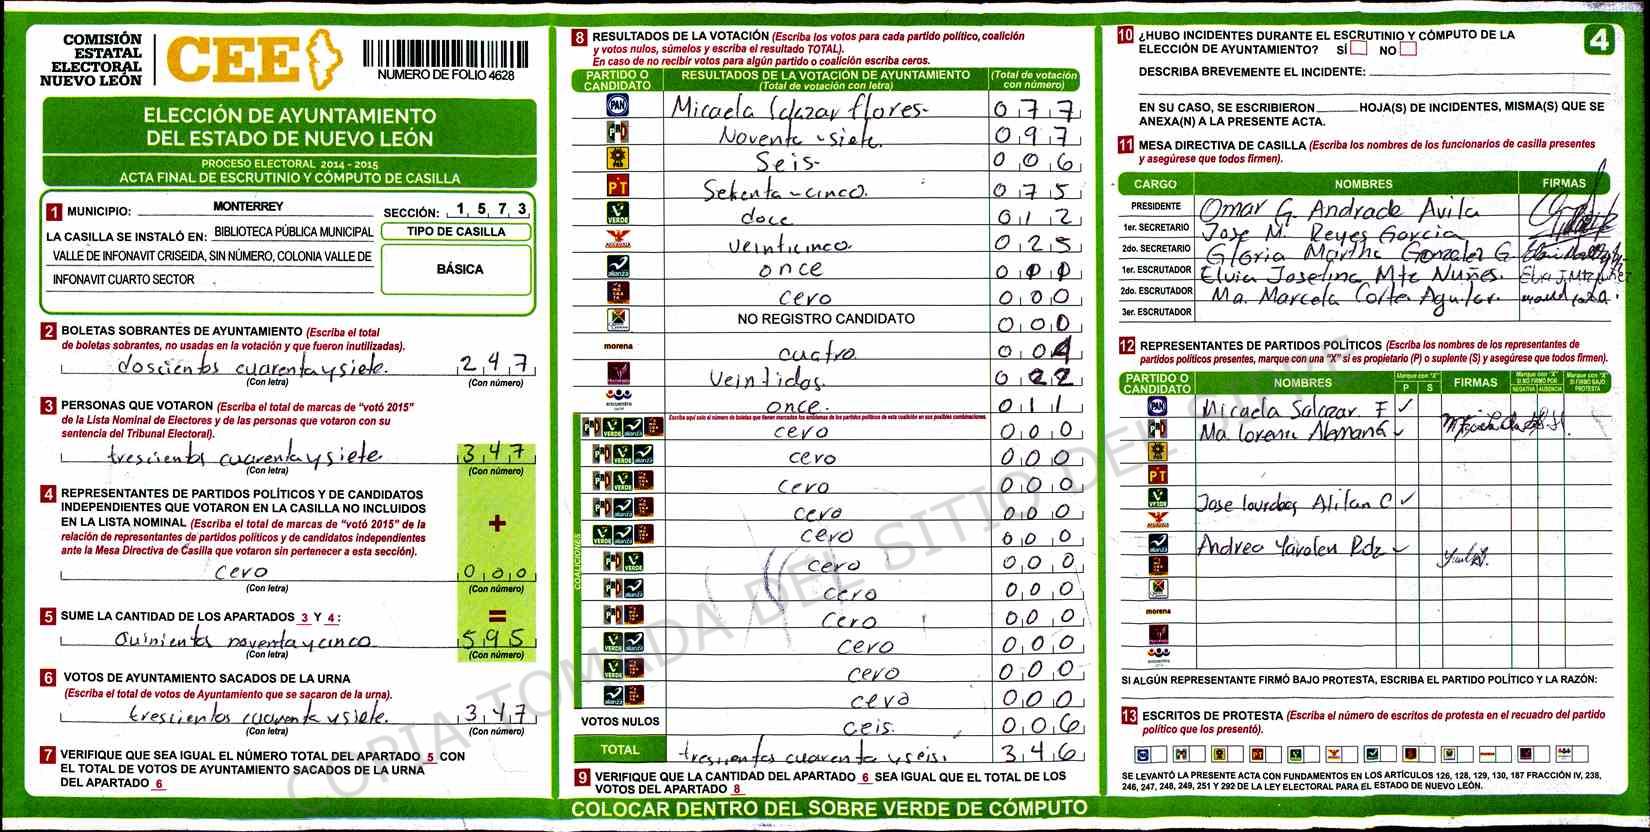 COMISIÓN
ESTATAL
ELECTORAL
NUEVO LEÓN
CEE
NUMERO DE FOLIO 4628
ELECCIÓN DE AYUNTAMIENTO
DEL ESTADO DE NUEVO LEÓN
PROCESO ELECTORAL 2014 - 2015
ACTA FINAL DE ESCRUTINIO Y CÓMPUTO DE CASILLA
1 MUNICIPIO: MONTERREY SECCIÓN: 1 5 7 3
LA CASILLA SE INSTALÓ EN: BIBLIOTECA PÚBLICA MUNICIPAL
VALLE DE INFONAVIT CRISEIDA, SIN NÚMERO, COLONIA VALLE DE
INFONAVIT CUARTO SECTOR
TIPO DE CASILLA
BÁSICA
2 BOLETAS SOBRANTES DE AYUNTAMIENTO (Escriba el total
de boletas sobrantes, no usadas en la votación y que fueron inutilizadas).
doscientos cuarenta y siete. 2 4 7
(Con letra) (Con número)
3 PERSONAS QUE VOTARON (Escriba el total de marcas de "votó 2015"
de la Lista Nominal de Electores y de las personas que votaron con su
sentencia del Tribunal Electoral).
trescientos cuarenta y siete. 3 4 7
(Con letra) (Con número)
4 REPRESENTANTES DE PARTIDOS POLÍTICOS Y DE CANDIDATOS
INDEPENDIENTES QUE VOTARON EN LA CASILLA NO INCLUIDOS
EN LA LISTA NOMINAL (Escriba el total de marcas de "votó 2015" de la
relación de representantes de partidos políticos y de candidatos independientes
ante la Mesa Directiva de Casilla que votaron sin pertenecer a esta sección).
+
cero 0 0 0
(Con letra) (Con número)
5 SUME LA CANTIDAD DE LOS APARTADOS 3 Y 4:
=
Quinientos noventa y cinco 5 9 5
(Con letra) (Con número)
6 VOTOS DE AYUNTAMIENTO SACADOS DE LA URNA
(Escriba el total de votos de Ayuntamiento que se sacaron de la urna).
trescientos cuarenta y siete. 3 4 7
(Con letra) (Con número)
7 VERIFIQUE QUE SEA IGUAL EL NÚMERO TOTAL DEL APARTADO 5 CON
EL TOTAL DE VOTOS DE AYUNTAMIENTO SACADOS DE LA URNA
DEL APARTADO 6
8 RESULTADOS DE LA VOTACIÓN (Escriba los votos para cada partido político, coalición
y votos nulos, súmelos y escriba el resultado TOTAL).
En caso de no recibir votos para algún partido o coalición escriba ceros.
PARTIDO O CANDIDATO
RESULTADOS DE LA VOTACIÓN DE AYUNTAMIENTO
(Total de votación con letra)
(Total de votación con número)
PAN Micaela Salazar flores- 0 7 7
Noventa y siete. 0 9 7
Seis- 0 0 6
PT Setenta-cinco. 0 7 5
VERDE doce 0 1 2
Veinticinco 0 2 5
alianza once
cero 0 0 0
NO REGISTRO CANDIDATO 0 0 0
morena cuatro 0 0 4
Veintidos. 0 2 2
encuentro once. 0 1 1
Escriba aquí solo el número de boletas que tienen marcados los emblemas de los partidos políticos de esta coalición en sus posibles combinaciones.
COALICIONES
cero 0 0 0
cero 0 0 0
cero 0 0 0
cero 0 0 0
cero 0 0 0
cero 0 0 0
cero 0 0 0
cero 0 0 0
cero 0 0 0
cero 0 0 0
cero 0 0 0
VOTOS NULOS ceis. 0 0 6
TOTAL trescientos cuarenta y seis. 3 4 6
9 VERIFIQUE QUE LA CANTIDAD DEL APARTADO 6 SEA IGUAL QUE EL TOTAL DE LOS
VOTOS DEL APARTADO 8
COLOCAR DENTRO DEL SOBRE VERDE DE CÓMPUTO
10 ¿HUBO INCIDENTES DURANTE EL ESCRUTINIO Y CÓMPUTO DE LA
ELECCIÓN DE AYUNTAMIENTO? SÍ NO
4
DESCRIBA BREVEMENTE EL INCIDENTE:
EN SU CASO, SE ESCRIBIERON HOJA(S) DE INCIDENTES, MISMA(S) QUE SE
ANEXA(N) A LA PRESENTE ACTA.
11 MESA DIRECTIVA DE CASILLA (Escriba los nombres de los funcionarios de casilla presentes
y asegúrese que todos firmen).
CARGO NOMBRES FIRMAS
PRESIDENTE Omar G. Andrade Avila
1er. SECRETARIO Jose M. Reyes Garcia
2do. SECRETARIO Gloria Martha Gonzalez G
1er. ESCRUTADOR Elvia Joselina Mtz Nuñes.
2do. ESCRUTADOR Ma. Marcela Cortez Aguilar.
3er. ESCRUTADOR
12 REPRESENTANTES DE PARTIDOS POLÍTICOS (Escriba los nombres de los representantes de
partidos políticos presentes, marque con una "X" si es propietario (P) o suplente (S) y asegúrese que todos firmen).
PARTIDO O CANDIDATO
NOMBRES
Marque con "X"
P S
FIRMAS
Marque con "X" SI NO FIRMÓ POR
NEGATIVA AUSENCIA
Marque con "X" SI FIRMÓ BAJO PROTESTA
PAN Micaela Salazar F ✓
Ma Lorena Alemana ✓
PT
VERDE Jose Lourdes C ✓
Andrea Rdz ✓
morena
encuentro
SI ALGÚN REPRESENTANTE FIRMÓ BAJO PROTESTA, ESCRIBA EL PARTIDO POLÍTICO Y LA RAZÓN:
13 ESCRITOS DE PROTESTA (Escriba el número de escritos de protesta en el recuadro del partido
político que los presentó).
SE LEVANTÓ LA PRESENTE ACTA CON FUNDAMENTOS EN LOS ARTÍCULOS 126, 128, 129, 130, 187 FRACCIÓN IV, 238,
246, 247, 248, 249, 251 Y 292 DE LA LEY ELECTORAL PARA EL ESTADO DE NUEVO LEÓN.
COPIA TOMADA DEL SITIO DEL SIPRE